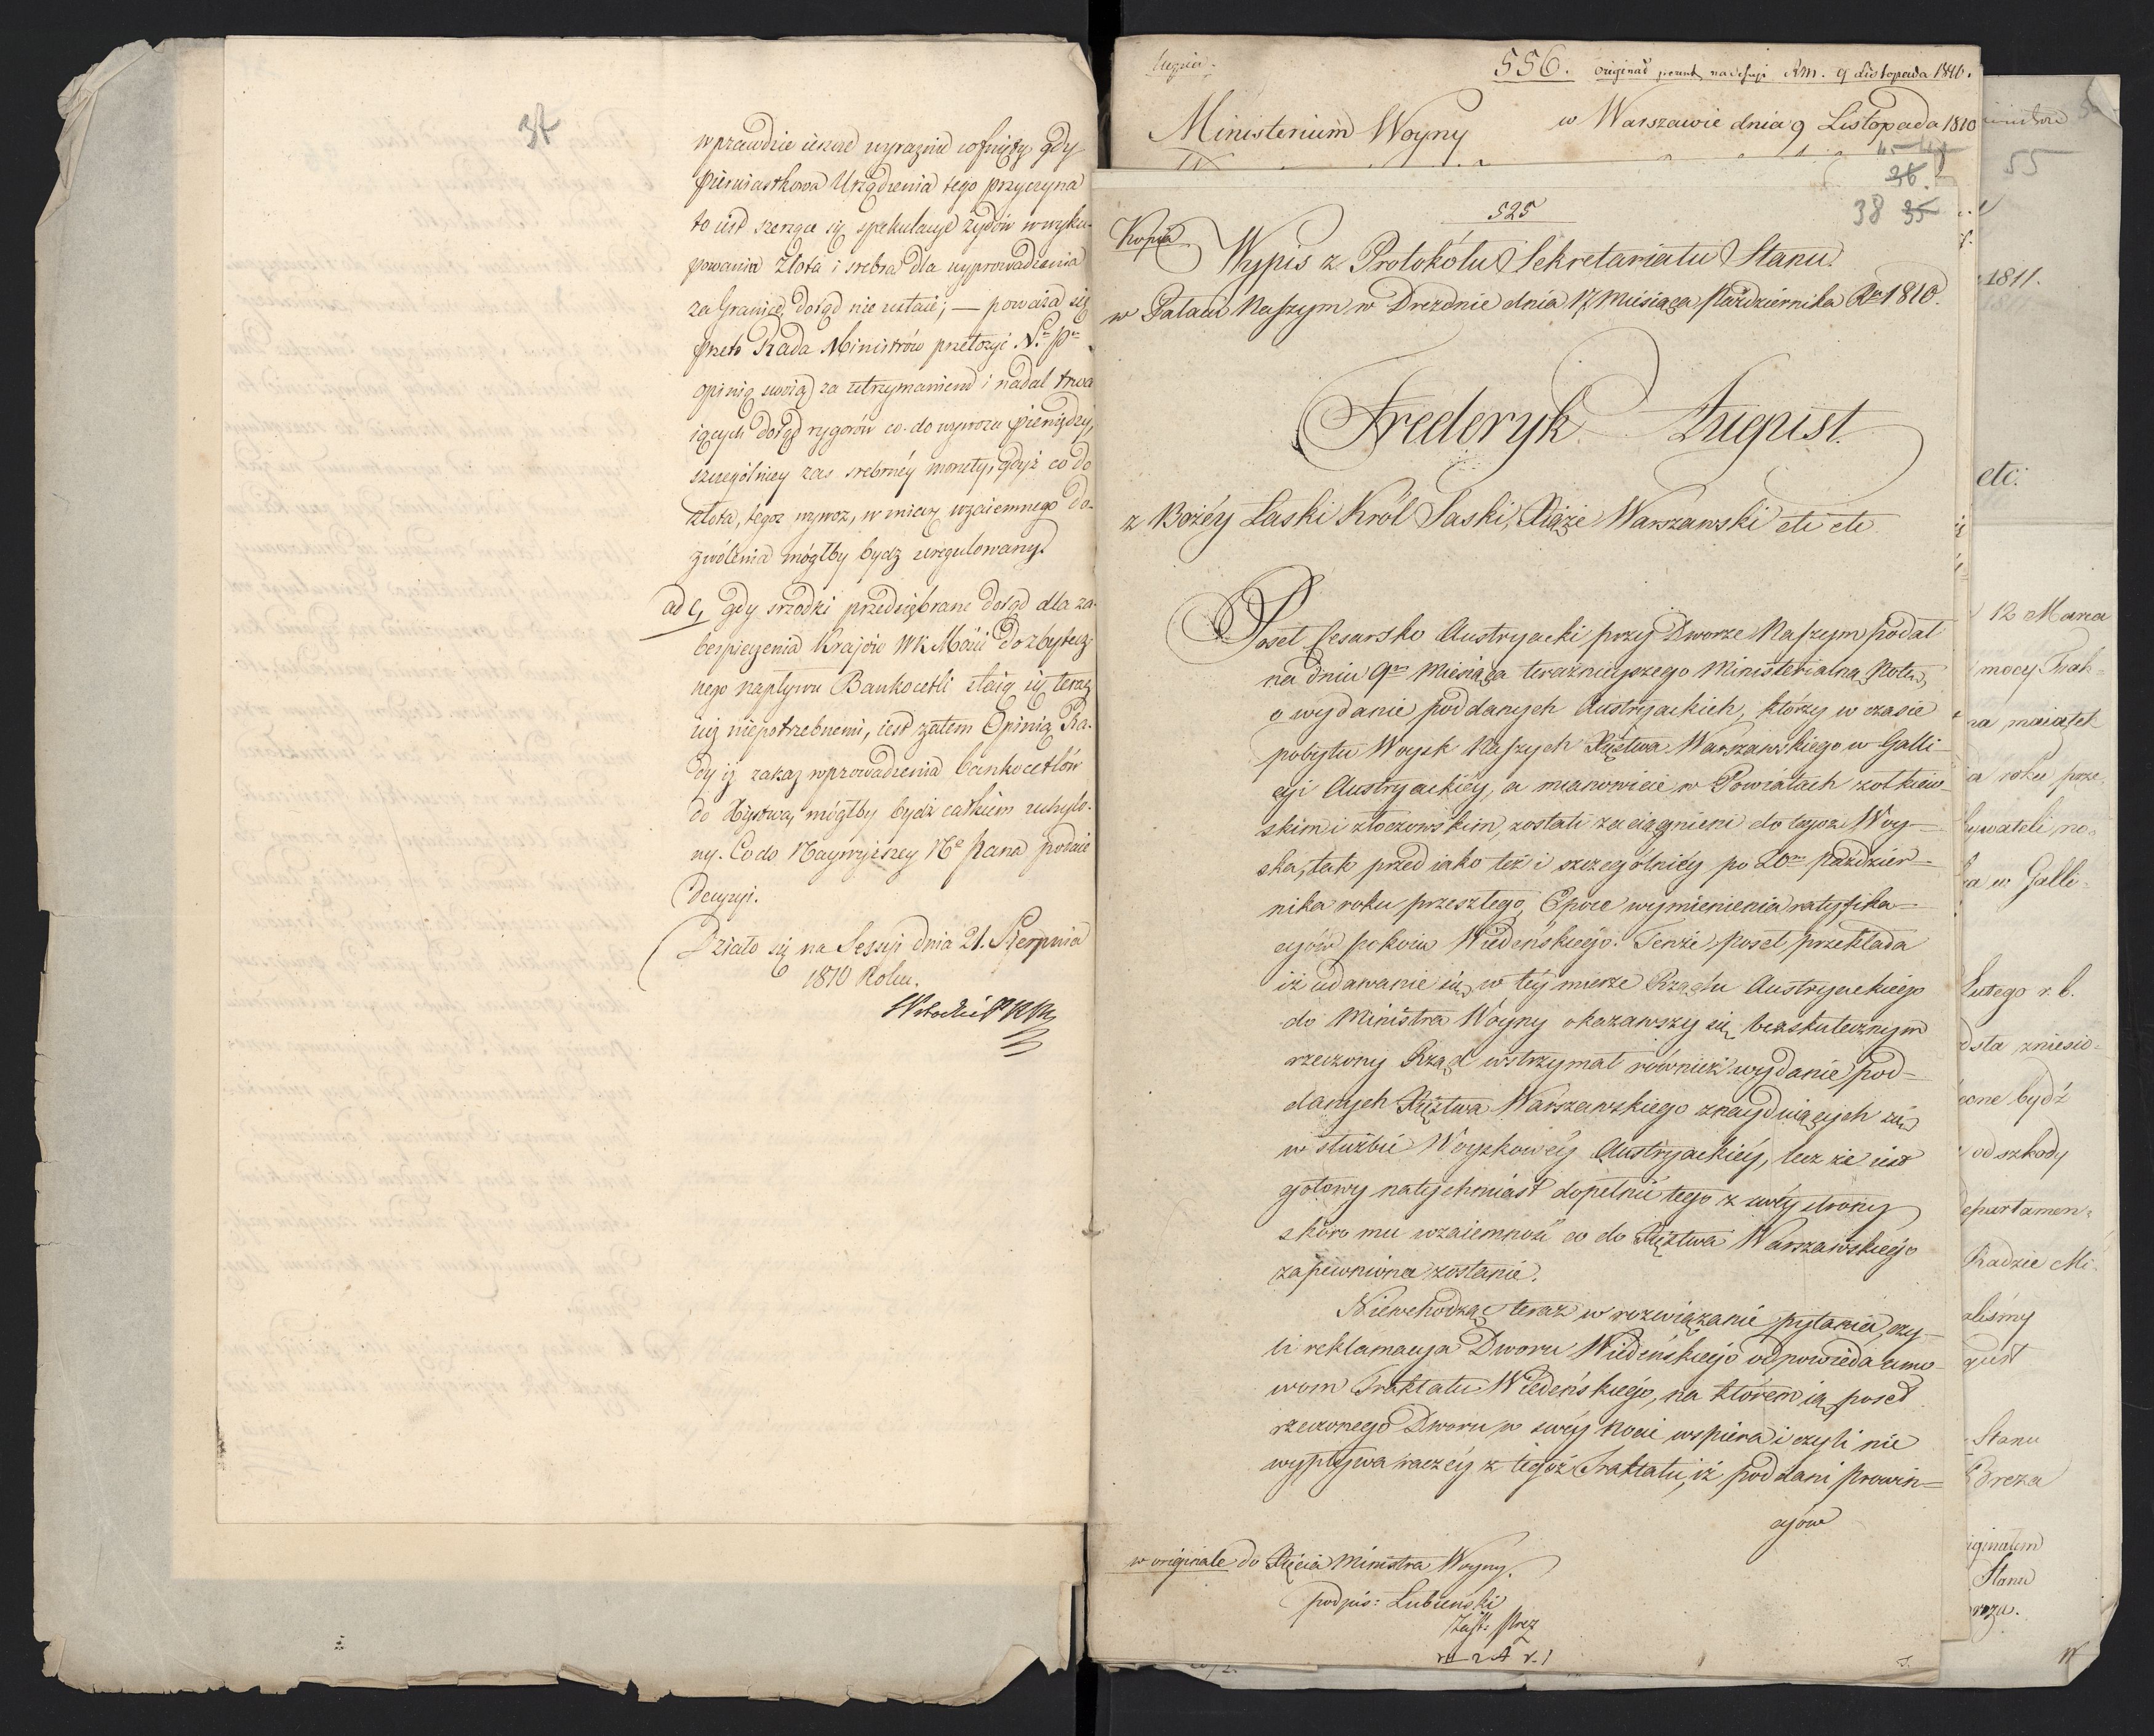 37
wprawdzie ieszcze wyraznie cofnięty, gdy
pierwiastkowa Urządzenia tego przyczyna
to iest szerzące się spekulacye żydów w wyku-
powania Złota i srebra dla wyprowadzenia
za Granicę dotąd nie ustaie; — poważa się
przeto Rada Ministrów przełożyć N. P.
opinią swoią za utrzymaniem i nadal trwa
iących dotąd rygorów co do wywozu pieniędzy,
szczególniey zas srebrnéy monety, gdyż co do
złota, tegoż wywoz, w miarę wzaiemnego do-
zwolenia mógłby bydz uregulowany.
ad c, gdy srzodki przedsiębrane dotąd dla za-
bespieczenia Kraiów WKMości do zbytecz-
nego napływu Bankocetli staią się teraz
iuż niepotrzebnemi, iest zatem Opinią Ra-
dy iż zakaz wprowadzenia bankocetlów
do Xięstwa, mógłby bydź całkiem uchylo-
ny. Co do Naywyższey N. Pana podaie
decyzyi.
Działo się na Sessyi dnia 21. Sierpnia
1810 Roku.
556. originał
w Warszawie dnia 9 Listopada 1810.
Ministerium Woyny w Warszawie dnia 9 Listopada 1810
36.
38 35
525
Kopia
Wypis z Protokółu Sekretariatu Stanu.
w Pałacu Naszym w Dreznie dnia 17 Miesiąca Października Ru 1810.
Frederyk August.
z Bożéy Łaski Król Saski, Xiąże Warszawski etc etc
Poseł Cesarsko Austryacki przy Dworze Naszym podał
na dniu 9m Miesiąca teraźnieyszego Ministerialną Notę,
o wydanie poddanych Austryackich, którzy w czasie
pobytu Woysk Naszych Xięstwa Warszawskiego w Galli-
cyi Austryackiéy, a mianowicie w Powiatach żołkiew-
skim i złoczowskim, zostali zaciągnieni do tegoż Woy-
ska, tak przed iako też i szczególniéy po 20m Paździer-
nika roku przeszłego, Epoce wymienienia ratyfika-
cyów pokoiu Wiedeńskiego. Tenże poseł przekłada
iż udawanie się w téy mierze Rządu Austryackiego
do Ministra Woyny okazawszy się bezskutecznym
rzeczony Rząd wstrzymał również wydanie pod-
danych Xięztwa Warszawskiego znayduiących się
w służbie Woyskowéy Austryackiéy, lecz że iest
gotowy natychmiast dopełnić tego z swéy strony
skoro mu wzaiemność co do Xięztwa Warszawskiego
zapewniona zostanie.
Niewchodząc teraz w rozwiązanie pytania, czy-
li reklamacya Dworu Wiedeńskiego odpowieda umo-
wom Traktatu Wiedeńskiego, na którem ią poseł
rzeczonego Dworu w swéy Nocie wspiera i czyli nie
wypływa raczéy z tegoż Traktatu, iż poddani prowin-
cyów
w originale do Xięcia Ministra Woyny.
podpis: Łubieński
Zast: Prez
55
1811.
etc:
12 Marca
mocy Trak-
na maiątek
ia roku prze
bywateli no-
ia w Galli-
Lutego r. b.
dsta zniesio-
one bydź
od szkody
epartamen-
Radzie Mi-
aliśmy
gust
Stanu
Breza
iginałem
Stanu
reza.